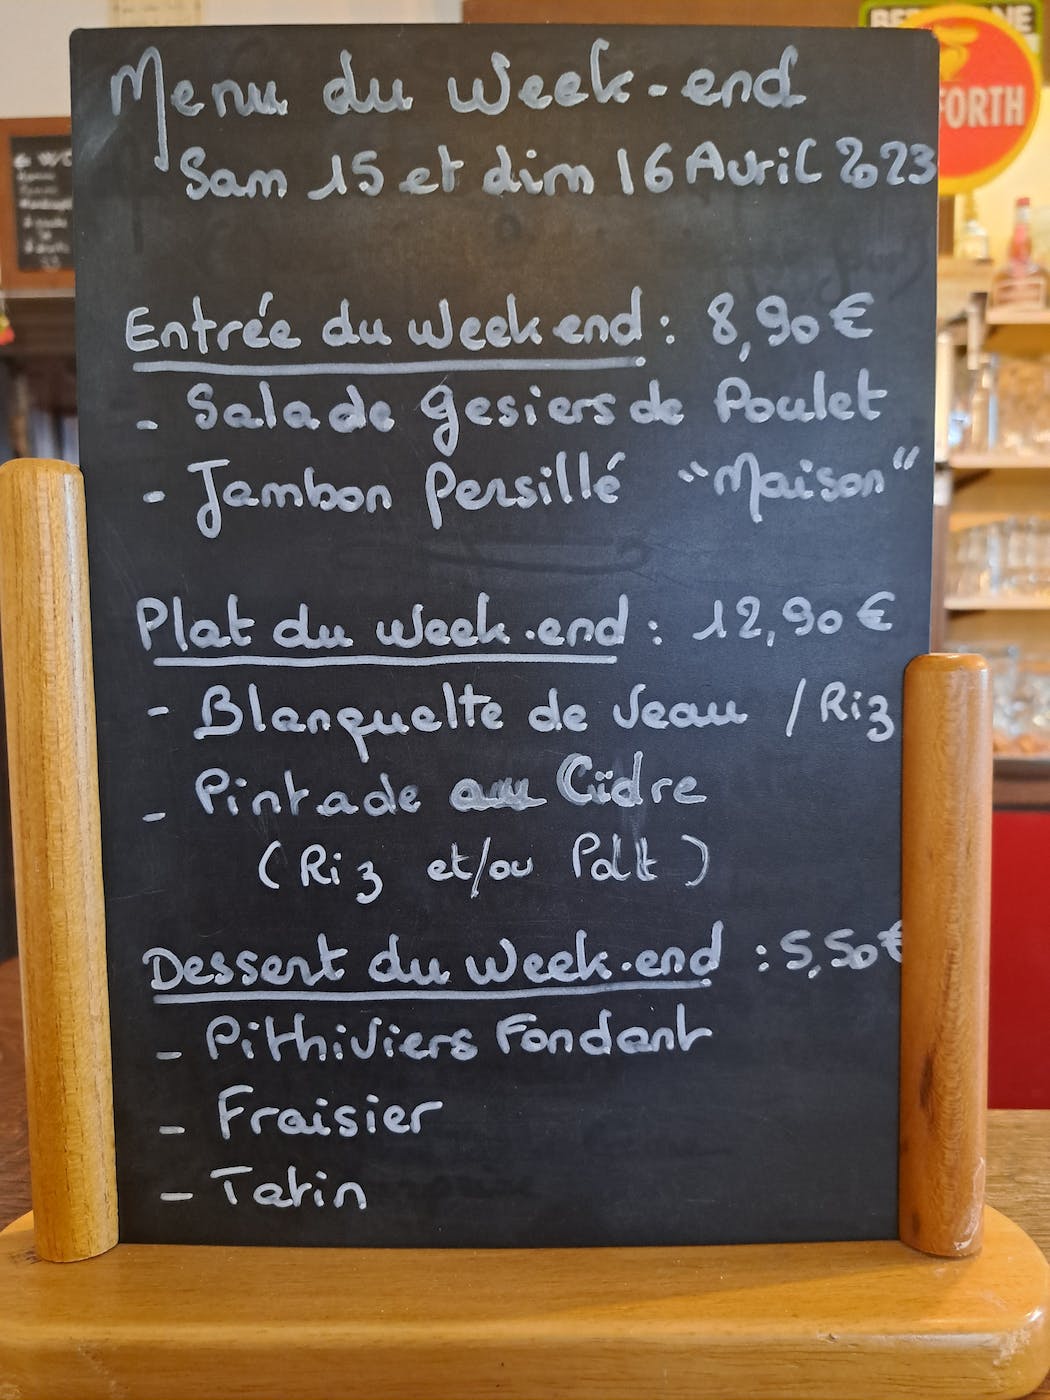 Menu du Week-end
Sam 15 et dim 16 Avril 2023
Entrée du week end : 8,90 €
- Salade gesiers de Poulet
- Jambon Persillé "Maison"
Plat du week-end : 12,90 €
- Blanquette de Veau / Riz
- Pintade au Cidre
(Riz et/ou Pdt)
Dessert du week-end : 5,50 €
- Pithiviers Fondant
- Fraisier
- Tatin
FORTH